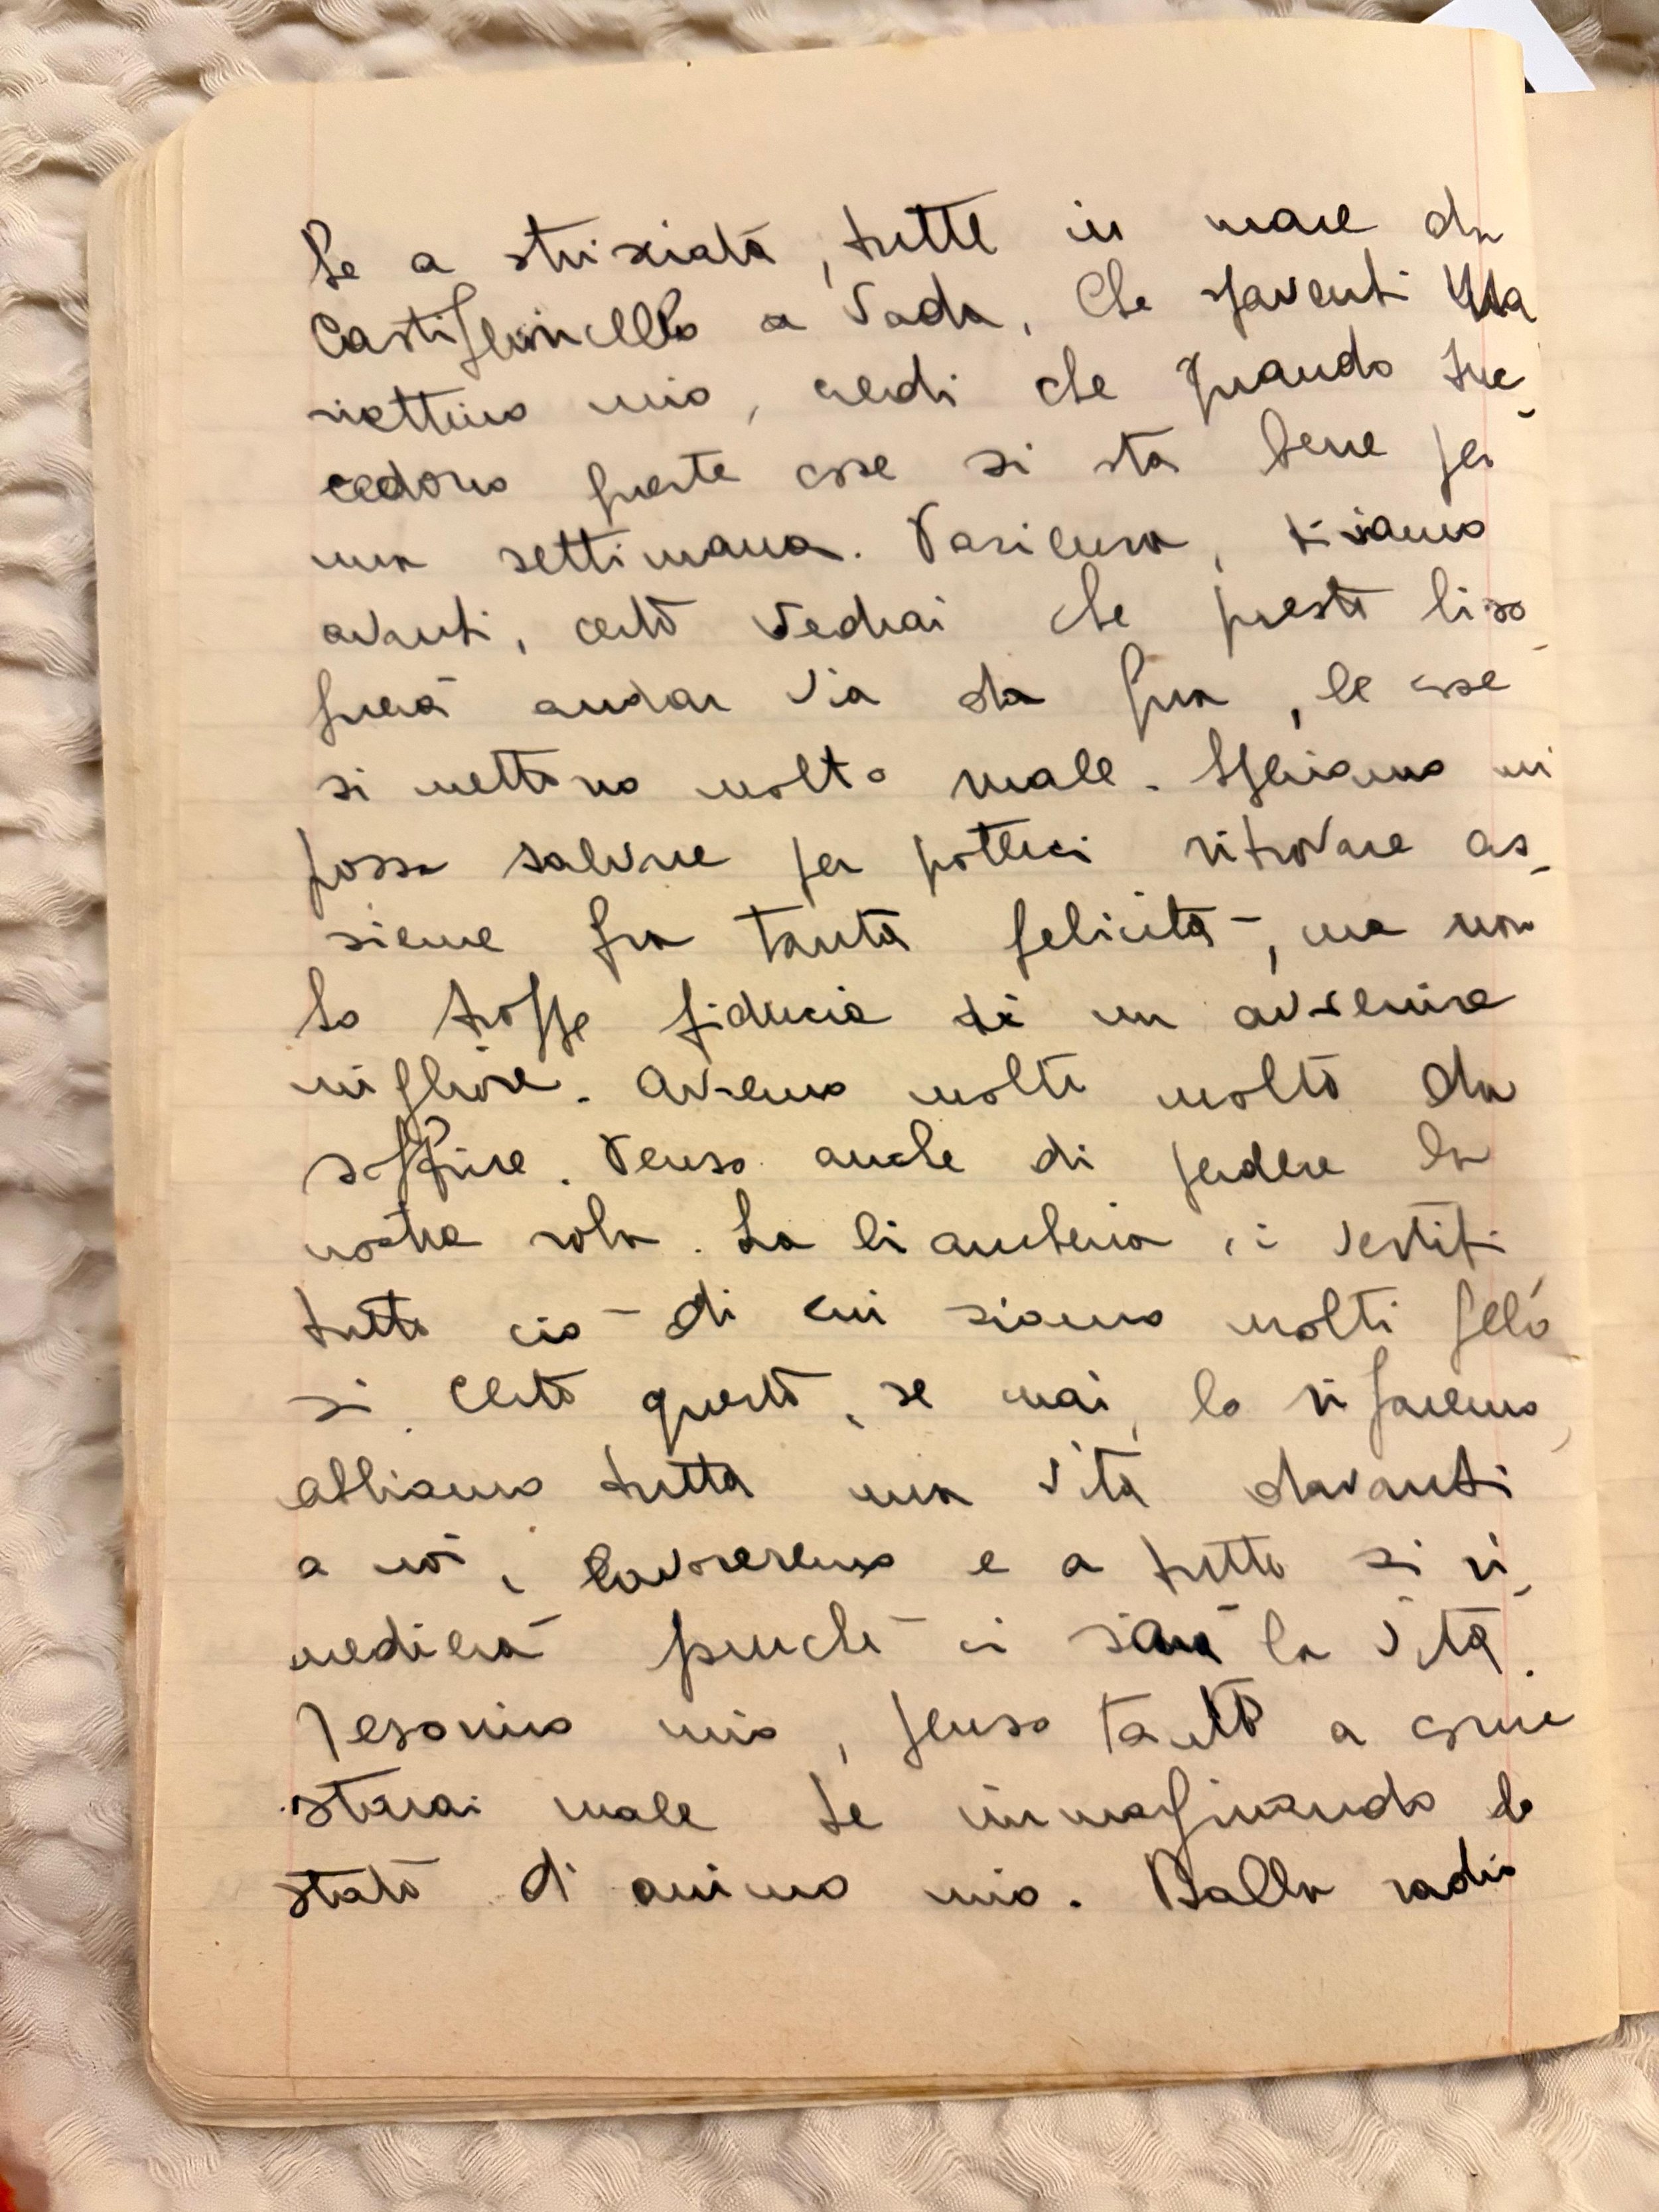 be a strisciata, tutte in mare da
Castiglioncello a Vada. Che spaventi Ma
riettino mio, credi che quando suc-
cedono queste cose si sta bene per
una settimana. Pasienza, tiriamo
avanti, certo vedrai che presto biso-
gnerà andar via da qua, le cose
si mettono molto male. Speriamo mi
possa salvare per potterci ritrovare as-
sieme fra tanta felicità, ma non
ho troppe fiducia di un avvenire
migliore. Avremo molto molto da
soffrire. Penso anche di perdere la
nostra roba. La biancheria, i vestiti
tutto ciò di cui siamo molti gelo
si. Certo questo, se mai, lo rifaremo,
abbiamo tutta una vita davanti
a noi, lavoreremo e a tutto si ri-
medierà purchè ci sarà la vita.
Tesorino mio, penso tanto a come
starai male te immaginando lo
stato di animo mio. Dalla radio